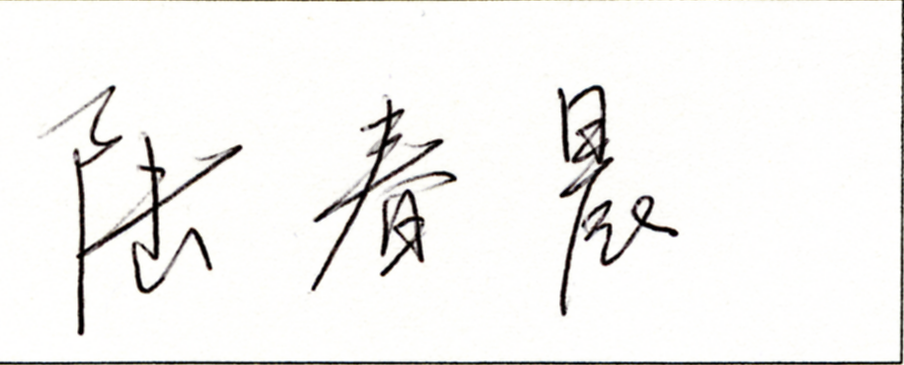 陆春晨